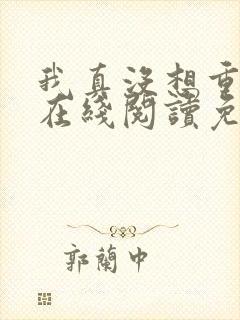 我真没想重
在綫閱讀免
郭蘭中